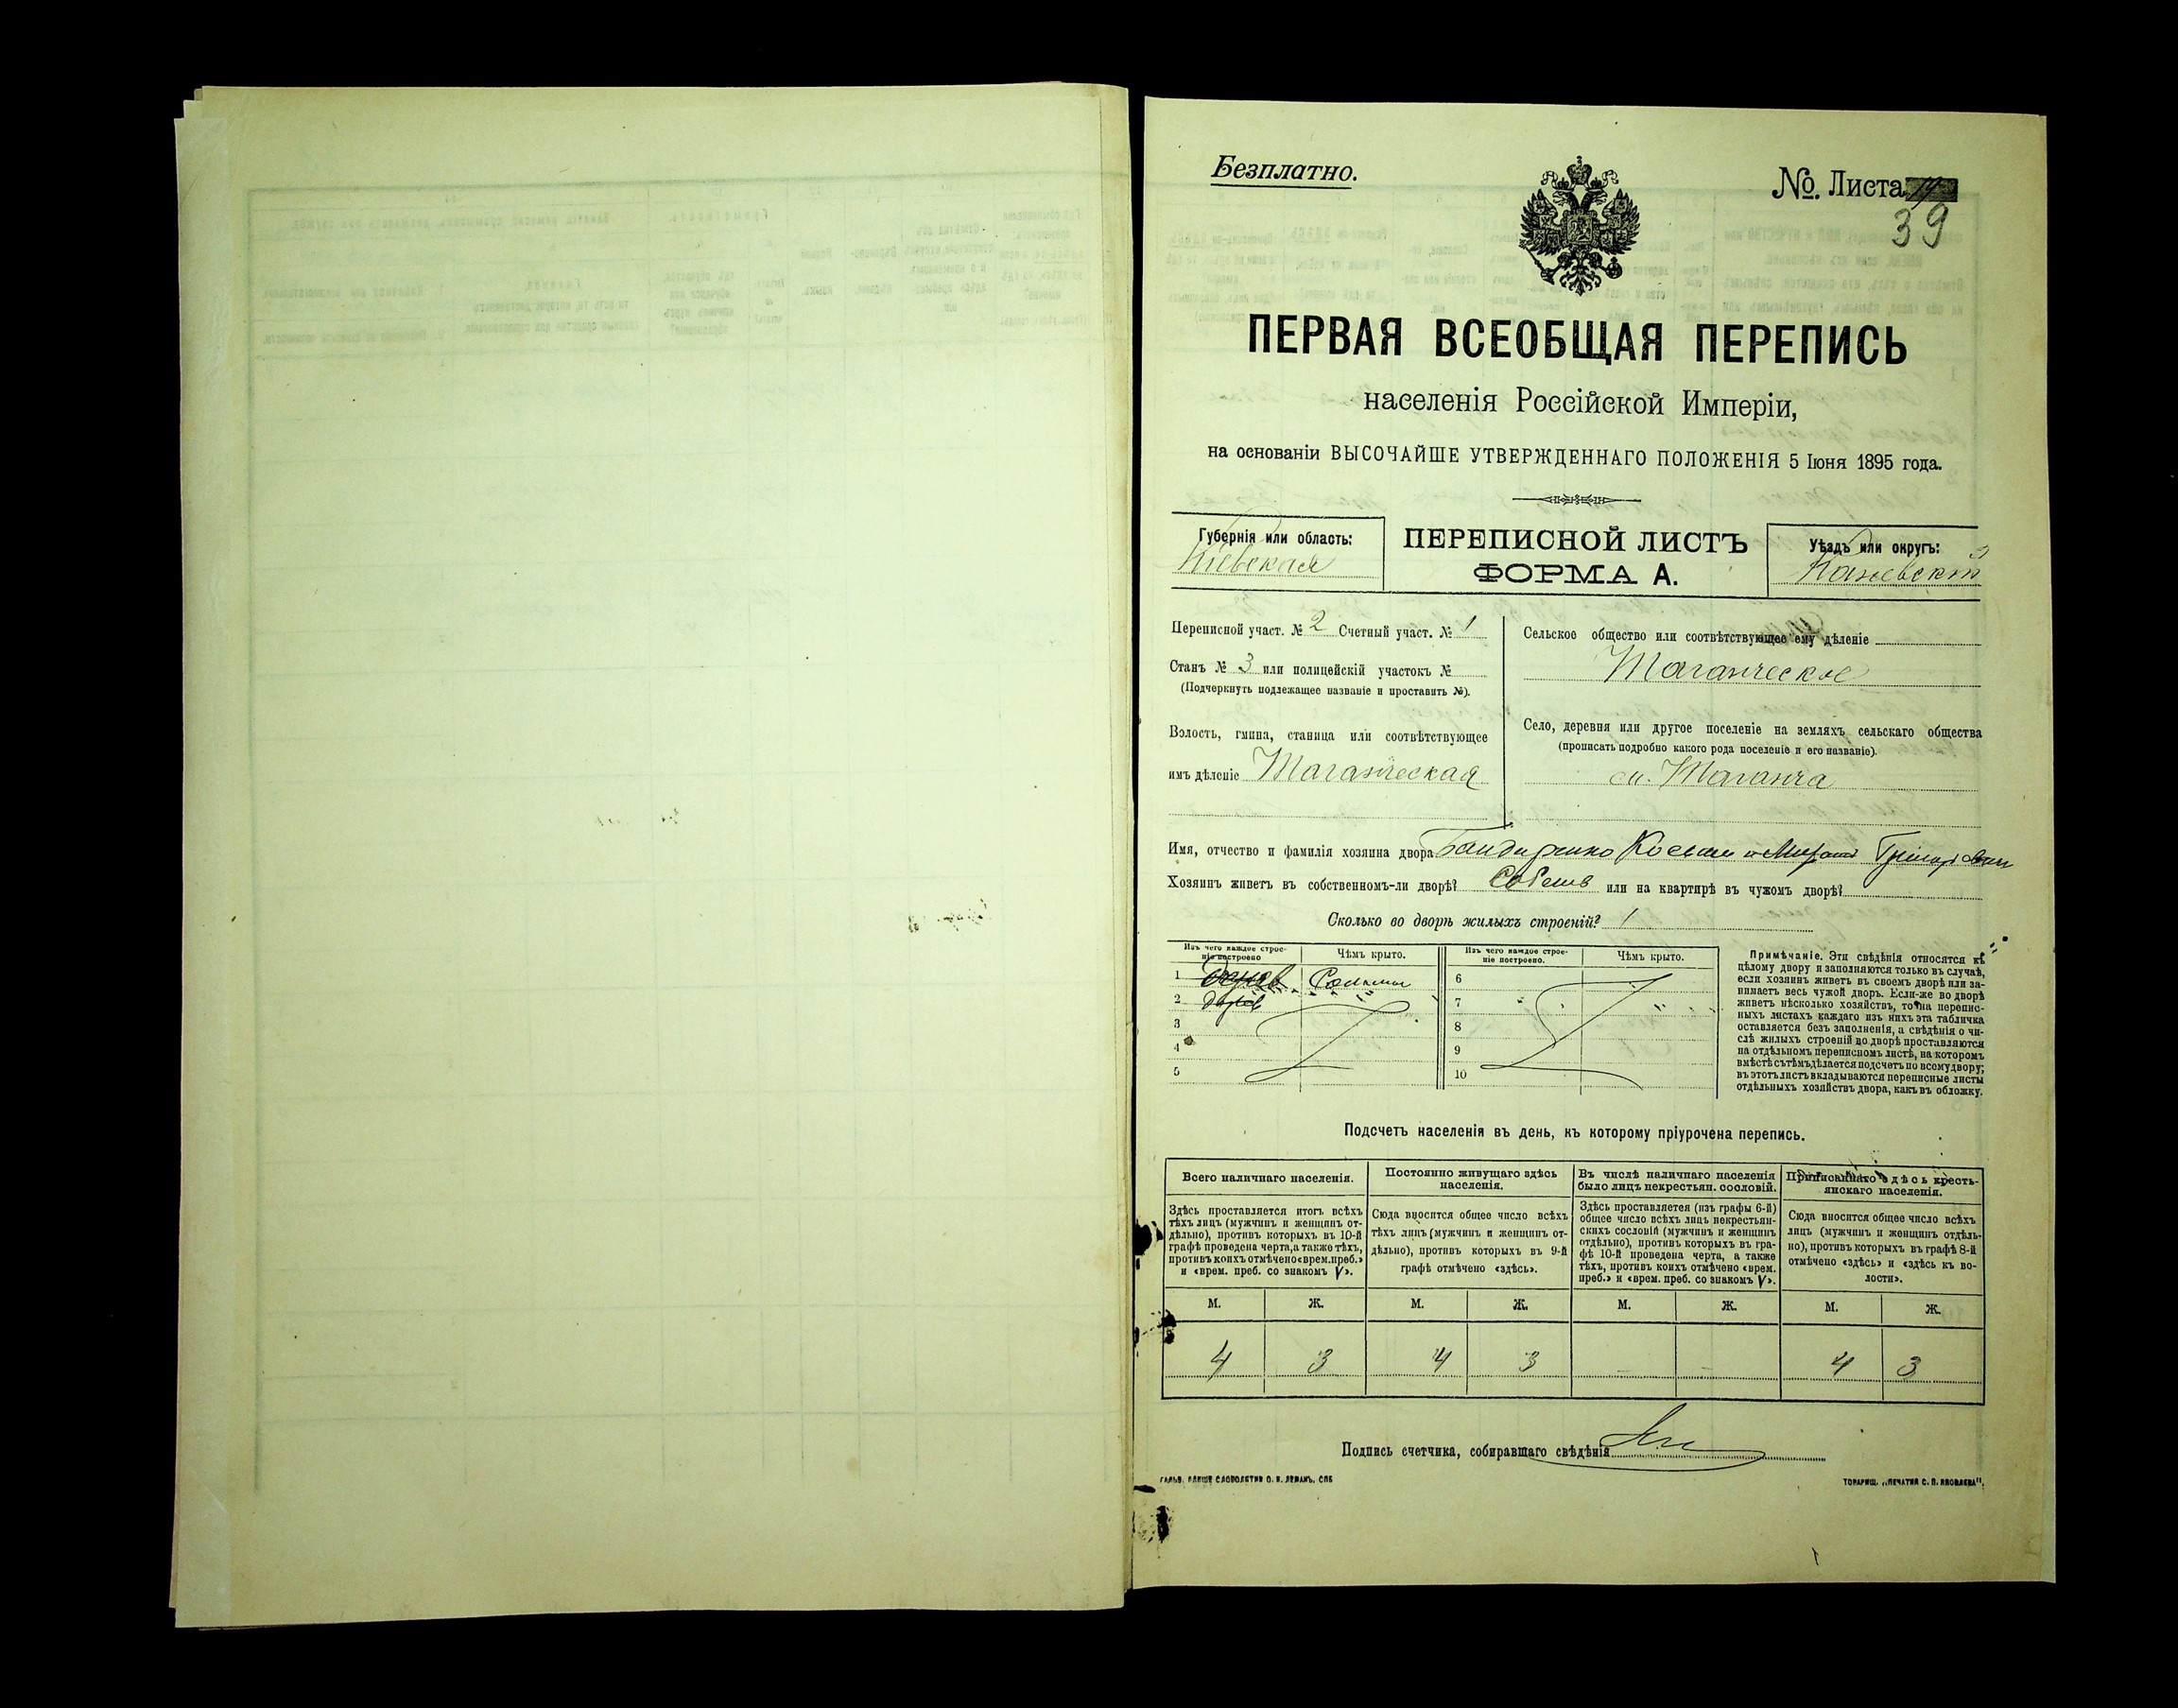 Безплатно.
№. Листа
39
ПЕРВАЯ ВСЕОБЩАЯ ПЕРЕПИСЬ
населенія Россійской Имперіи,
на основаніи ВЫСОЧАЙШЕ УТВЕРЖДЕННАГО ПОЛОЖЕНІЯ 5 Іюня 1895 года.
Губернія или область:
Кіевская
ПЕРЕПИСНОЙ ЛИСТЪ
ФОРМА А.
Уѣздъ или округъ:
Каневскій
Переписной участ. № 2 Счетный участ. № 1
Станъ № 3 или полицейскій участокъ №
(Подчеркнуть подлежащее названіе и проставить №).
Волость, гмина, станица или соотвѣтствующее
имъ дѣленіе Таганческая
Сельское общество или соотвѣтствующее ему дѣленіе
Таганческое
Село, деревня или другое поселеніе на земляхъ сельскаго общества
(прописать подробно какого рода поселеніе и его названіе).
м. Таганча
Имя, отчество и фамилія хозяина двора
Хозяинъ живетъ въ собственномъ-ли дворѣ? или на квартирѣ въ чужомъ дворѣ?
Сколько во дворѣ жилыхъ строеній? 1
Изъ чего каждое строе-
ніе построено
Чѣмъ крыто.
Изъ чего каждое строе-
ніе построено.
Чѣмъ крыто.
1
2
3
4
5
6
7
8
9
10
Примѣчаніе. Эти свѣдѣнія относятся къ
цѣлому двору и заполняются только въ случаѣ,
если хозяинъ живетъ въ своемъ дворѣ или за-
нимаетъ весь чужой дворъ. Если-же во дворѣ
живетъ нѣсколько хозяйствъ, то на перепис-
ныхъ листахъ каждаго изъ нихъ эта табличка
оставляется безъ заполненія, а свѣдѣнія о чи-
слѣ жилыхъ строеній во дворѣ проставляются
на отдѣльномъ переписномъ листѣ, на которомъ
вмѣстѣ съ тѣмъ дѣлается подсчетъ по всему двору;
въ этотъ листъ вкладываются переписные листы
отдѣльныхъ хозяйствъ двора, какъ въ обложку.
Подсчетъ населенія въ день, къ которому пріурочена перепись.
Всего наличнаго населенія.
Здѣсь проставляется итогъ всѣхъ
тѣхъ лицъ (мужчинъ и женщинъ от-
дѣльно), противъ которыхъ въ 10-й
графѣ проведена черта, а также тѣхъ,
противъ коихъ отмѣчено «врем. преб.»
и «врем. преб. со знакомъ V».
Постоянно живущаго здѣсь
населенія.
Сюда вносится общее число всѣхъ
тѣхъ лицъ (мужчинъ и женщинъ от-
дѣльно), противъ которыхъ въ 9-й
графѣ отмѣчено «здѣсь».
Въ числѣ наличнаго населенія
было лицъ некрестьян. сословій.
Здѣсь проставляется (изъ графы 6-й)
общее число всѣхъ лицъ некрестьян-
скихъ сословій (мужчинъ и женщинъ
отдѣльно), противъ которыхъ въ гра-
фѣ 10-й проведена черта, а также
тѣхъ, противъ коихъ отмѣчено «врем.
преб.» и «врем. преб. со знакомъ V».
Приписаннаго здѣсь кресть-
янскаго населенія.
Сюда вносится общее число всѣхъ
лицъ (мужчинъ и женщинъ отдѣль-
но), противъ которыхъ въ графѣ 8-й
отмѣчено «здѣсь» и «здѣсь къ во-
лости».
М. Ж. М. Ж. М. Ж. М. Ж.
4 3 4 3 – – 4 3
Подпись счетчика, собиравшаго свѣдѣнія
ТОВАРИЩ. „ПЕЧАТНЯ С. П. ЯКОВЛЕВА".